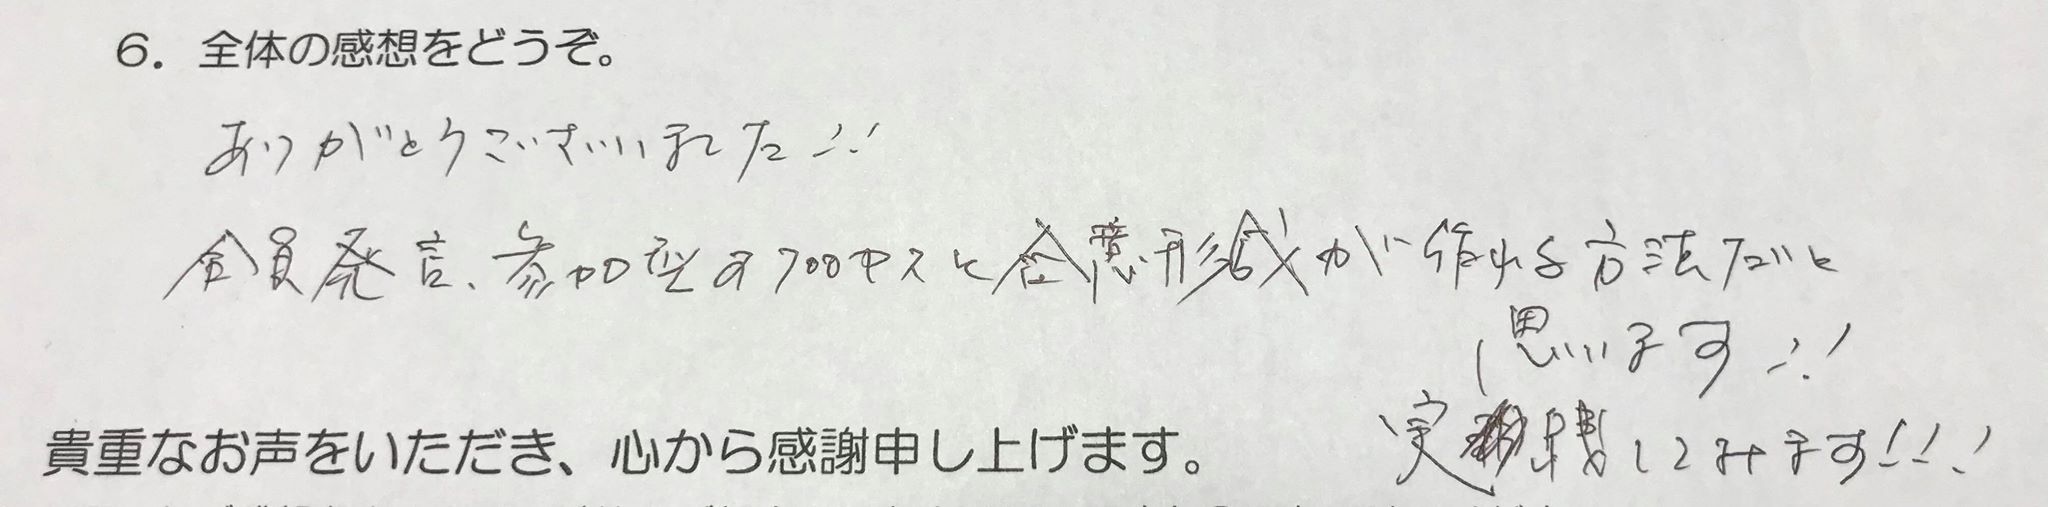 6. 全体の感想をどうぞ。
ありがとうございました!!
全員発言、参加型のプロセスと合意形成が作れる方法だと
思います!!
実践してみます!!!
貴重なお声をいただき、心から感謝申し上げます。